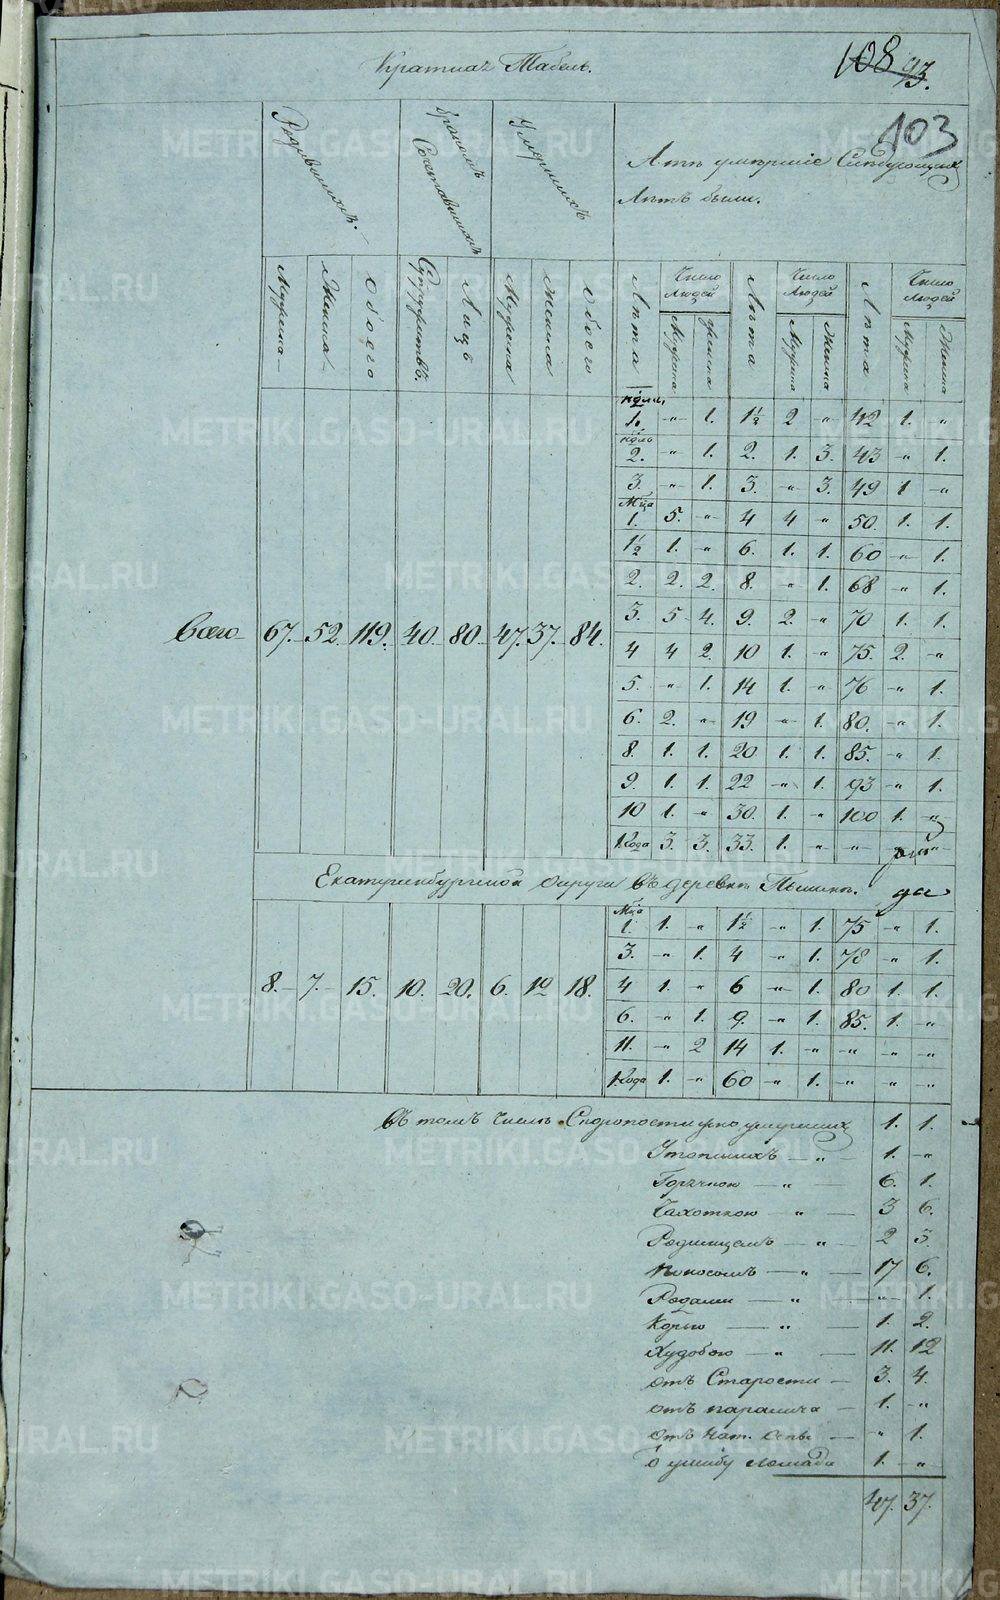 Краткая Табель.
108 93.
103
Родившихся.
Бракомъ Сочетавшихся
Умершихъ
А тѣ умершіе Слѣдующихъ
Лѣтъ были.
Мужска
Женска
Обоего
Супружествъ
Лицъ
Мужска
Женска
Обоего
Лѣта
Число Людей
Мужска
Женска
Лѣта
Число Людей
Мужска
Женска
Лѣта
Число Людей
Мужска
Женска
Всего 67. 52. 119. 40. 80. 47. 37. 84.
нѣдели 1. " 1. 1½ 2 " 42 1. "
нѣдль 2. " 1. 2. 1. 3. 43 " 1.
3. " 1. 3. " 3. 49 1 "
Мѣца 1. 5. " 4 4 " 50. 1. 1.
1½ 1. " 6. 1. 1. 60 " 1.
2. 2. 2. 8. " 1. 68 " 1.
3. 5 4. 9. 2. " 70 1. 1.
4 4 2. 10 1. " 75. 2. "
5. " 1. 14 1. " 76 " 1.
6. 2. " 19 " 1. 80. " 1.
8. 1. 1. 20 1. 1. 85. " 1.
9. 1. 1. 22 " 1. 93 " 1.
10 1. " 30. 1. " 100 1. "
1. Года 3. 3. 33. 1. " " "
Екатеринбургской округи въ деревнѣ Пышмѣ.
8. 7. 15. 10. 20. 6. 12 18.
Мѣца 1. 1. " 1½ " 1. 75 " 1.
3. " 1. 4 " 1. 78 " 1.
4 1. " 6 " 1. 80 1. 1.
6. " 1. 9. " 1. 85. 1. "
11. " 2 14 1. " " " "
1. Года 1. " 60 " 1. " " "
Въ томъ числѣ Скоропостижно умершихъ 1. 1.
Утопшихъ — " — 1. "
Горячкою — " — 6. 1.
Чахоткою — " — 3 6.
Родимцемъ — " — 2 3.
Поносомъ — " — 17 6.
Родами — " — " 1.
Корью — " — 1. 2.
Худобою — " — 11. 12
отъ Старости — 3. 4.
отъ паралича — 1. "
отъ нат. Оспы — " 1.
ушибу лошади 1. "
47. 37.
METRIKI.GASO-URAL.RU